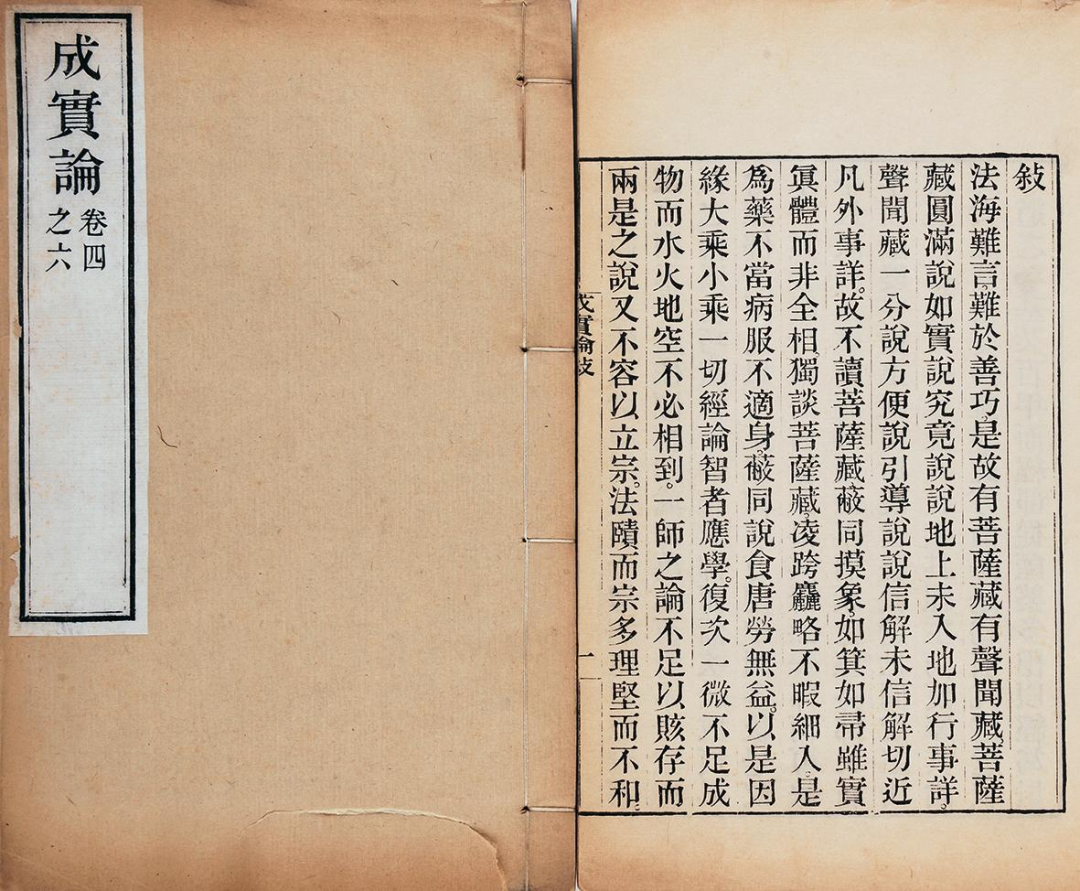 成實論
卷四
之六
敍
法海難言。難於善巧。是故有菩薩藏有聲聞藏。菩薩
藏圓滿說如實說究竟說說地上未入地加行事詳。
聲聞藏一分說方便說引導說說信解未信解切近
凡外事詳。故不讀菩薩藏。蔽同摸象。如箕如帚雖實
眞體而非全相。獨談菩薩藏。凌跨麤略不暇細入。是
爲藥不當病服不適身。蔽同說食唐勞無益。以是因
緣大乘小乘一切經論智者應學。復次一微不足成
物而水火地空不必相到。一師之論不足以賅存而
兩是之說又不容以立宗。法賾而宗多理堅而不和。
成實論敍
一